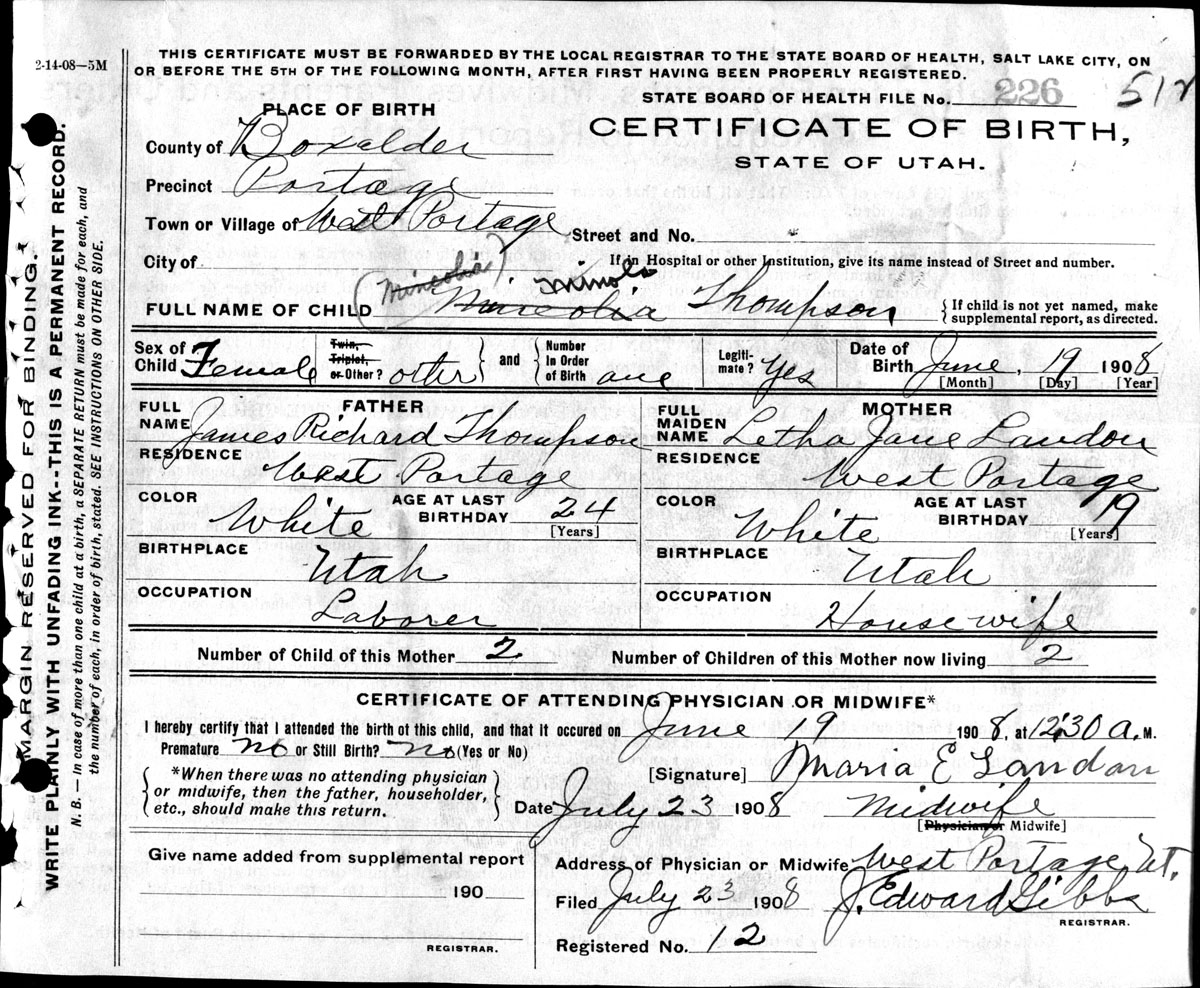 2-14-08—5M
THIS CERTIFICATE MUST BE FORWARDED BY THE LOCAL REGISTRAR TO THE STATE BOARD OF HEALTH, SALT LAKE CITY, ON
OR BEFORE THE 5TH OF THE FOLLOWING MONTH, AFTER FIRST HAVING BEEN PROPERLY REGISTERED.
STATE BOARD OF HEALTH FILE No. 226 512
PLACE OF BIRTH
CERTIFICATE OF BIRTH,
STATE OF UTAH.
County of Boxelder
Precinct Portage
Town or Village of West Portage Street and No.
City of If in Hospital or other Institution, give its name instead of Street and number.
(Mineolia) Minola
FULL NAME OF CHILD Mineolia Thompson { If child is not yet named, make
supplemental report, as directed.
Sex of Child Female Twin, Triplet, or Other? other } and { Number In Order of Birth one Legiti-mate? Yes Date of Birth June, 19 1908
[Month] [Day] [Year]
FATHER
FULL NAME James Richard Thompson
RESIDENCE West Portage
COLOR White AGE AT LAST BIRTHDAY 24 [Years]
BIRTHPLACE Utah
OCCUPATION Laborer
MOTHER
FULL MAIDEN NAME Letha Jane Landon
RESIDENCE West Portage
COLOR White AGE AT LAST BIRTHDAY 19 [Years]
BIRTHPLACE Utah
OCCUPATION Housewife
Number of Child of this Mother 2 Number of Children of this Mother now living 2
CERTIFICATE OF ATTENDING PHYSICIAN OR MIDWIFE*
I hereby certify that I attended the birth of this child, and that it occured on June 19 1908, at 12:30 a. M.
Premature No or Still Birth? No (Yes or No)
{ *When there was no attending physician
or midwife, then the father, householder,
etc., should make this return. }
[Signature] Maria E Landon
Date July 23 1908 Midwife
[Physician or Midwife]
Give name added from supplemental report
190
REGISTRAR.
Address of Physician or Midwife West Portage Ut.
Filed July 23 1908 J. Edward Gibbs
REGISTRAR.
Registered No. 12
MARGIN RESERVED FOR BINDING.
WRITE PLAINLY WITH UNFADING INK--THIS IS A PERMANENT RECORD.
N. B. — In case of more than one child at a birth, a SEPARATE RETURN must be made for each, and
the number of each, in order of birth, stated. SEE INSTRUCTIONS ON OTHER SIDE.